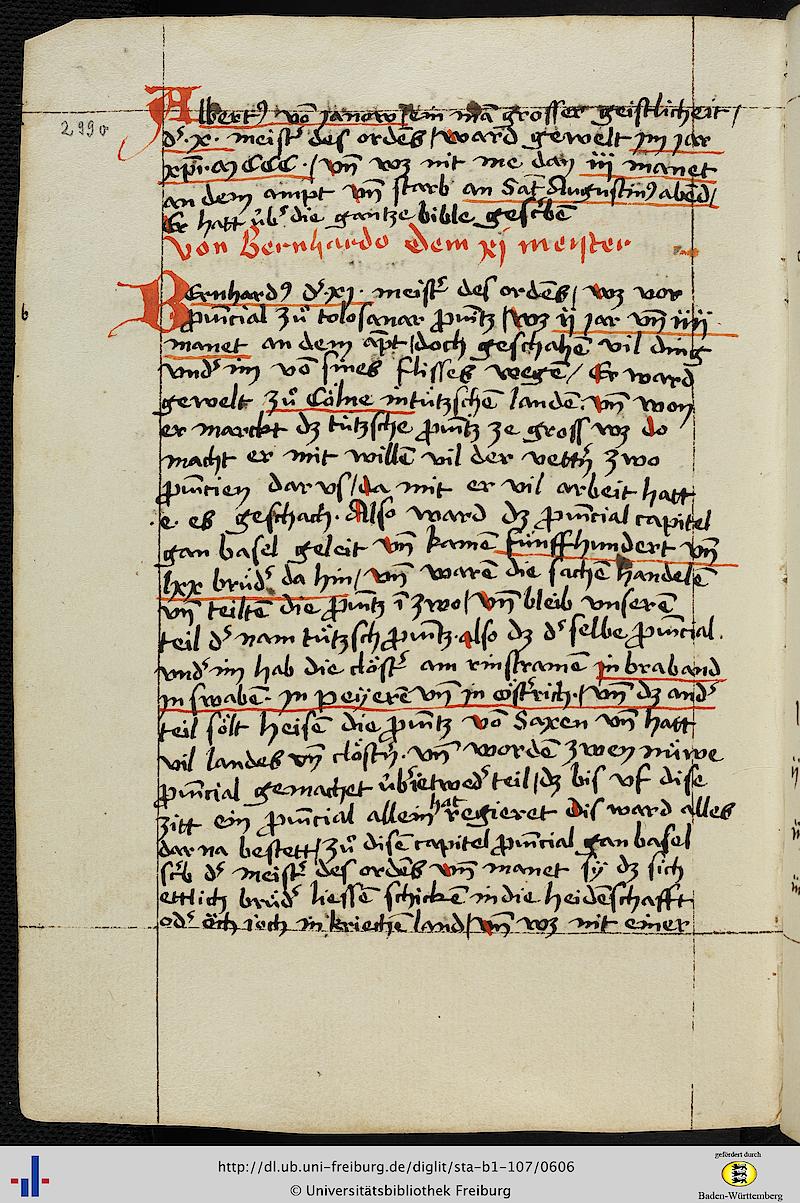 299v
Albertꝰ vō ianow / ein mā grosser geistlicheit /
dˢ .x. meistˢ des ordēs / ward gewelt im jar
xpi. M CCC . / vn̄ wz nit me dan iii manet
an dem ampt vn̄ starb an Sāt Augustinꝰ abēd /
Er hatt úbˢ die gantze bible gescˢbē
Von Bernhardo dem xj meister
BErnhardꝰ dˢ .xj. meistˢ des ordēs / wz vor
ꝓuincial zů tolosanar ꝓuintz / wz ij jar vn̄ iiij
manet an dem apt / doch geschahē vil ding
vndˢ im vō sines flisses wegē / Er ward
gewelt zů Cölne in tútzschē landē . vn̄ won
er marckt dz tútzsche ꝓuintz ze gross wz do
macht er mit willē vil der vettˢn zwo
ꝓuincien dar vs / da mit er vil arbeit hatt
e. es geschach. Also ward dz ꝓuincial capitel
gan basel geleit vn̄ kamē fúnffhundert vn̄
lxx brúdˢ da hin / vn̄ warē die sachē handelē
vn̄ teiltē die ꝓuintz ī zwo / vn̄ bleib vnserē
teil dˢ nam tútzsch ꝓuintz. also dz dˢ selbe ꝓuincial.
vndˢ im hab die clöstˢ am rinstramē in braband
in swabē. in peyerē vn̄ in östˢrich. / vn̄ dz andˢ
teil sölt heisē die ꝓuintz vō Saxen vn̄ hatt
vil landes vn̄ clöstˢn. vn̄ wordē zwen núwe
ꝓuincial gemachet úbˢ ietwedˢ teil / dz bis vf dise
zitt ein ꝓuincial allein hat regieret dis ward alles
dar na bestett / zů disē capitel ꝓuincial gan basel
scˢb dˢ meistˢ des ordēs vn̄ manet sy dz sich
ettlich brúdˢ liessē schickē in die heidēschafft
odˢ öch ioch in kriechē land / vn̄ wz nit einer
http://dl.ub.uni-freiburg.de/diglit/sta-b1-107/0606
© Universitätsbibliothek Freiburg
gefördert durch
Baden-Württemberg